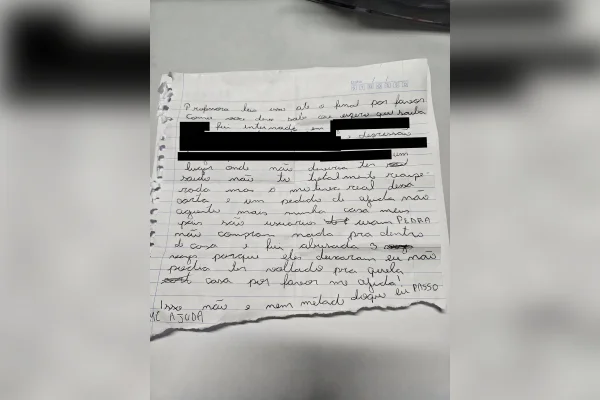 Professora leia isso até o final por favor
Como você deve sabe eu espero que saiba
fui internada em
, depressão
um
lugar onde não deveria ter
saido não to totalmente recupe-
rada mas o motivo real dessa
carta e um pedido de ajuda não
aguento mais minha casa meus
pais são usuarios usam PEDRA
não compram nada pra dentro
de casa e fui abusada 3
vezes porque eles deixaram eu não
podia ter voltado pra quela
casa por favor me ajuda!
Isso não e nem metade doque eu PASSO
ME AJUDA